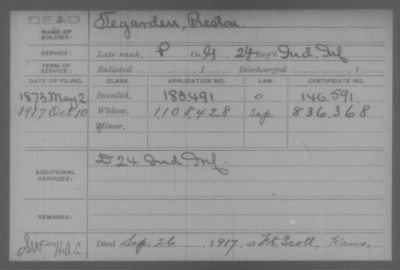 DEAD
NAME OF SOLDIER: Tegarden, Preston.
SERVICE: Late rank, P Co. G, 24 Reg't Ind. Inf
TERM OF SERVICE: Enlisted , 1 Discharged , 1
DATE OF FILING. CLASS. APPLICATION NO. LAW. CERTIFICATE NO.
1873 May 2 Invalid, 183.491 O 146.591
1917 Oct 10 Widow, 1108428 836.368
Minor,
ADDITIONAL SERVICES: D 24 Ind. Inf.
REMARKS:
Died Sep. 26, 1917, at Ft. Scott, Kans,